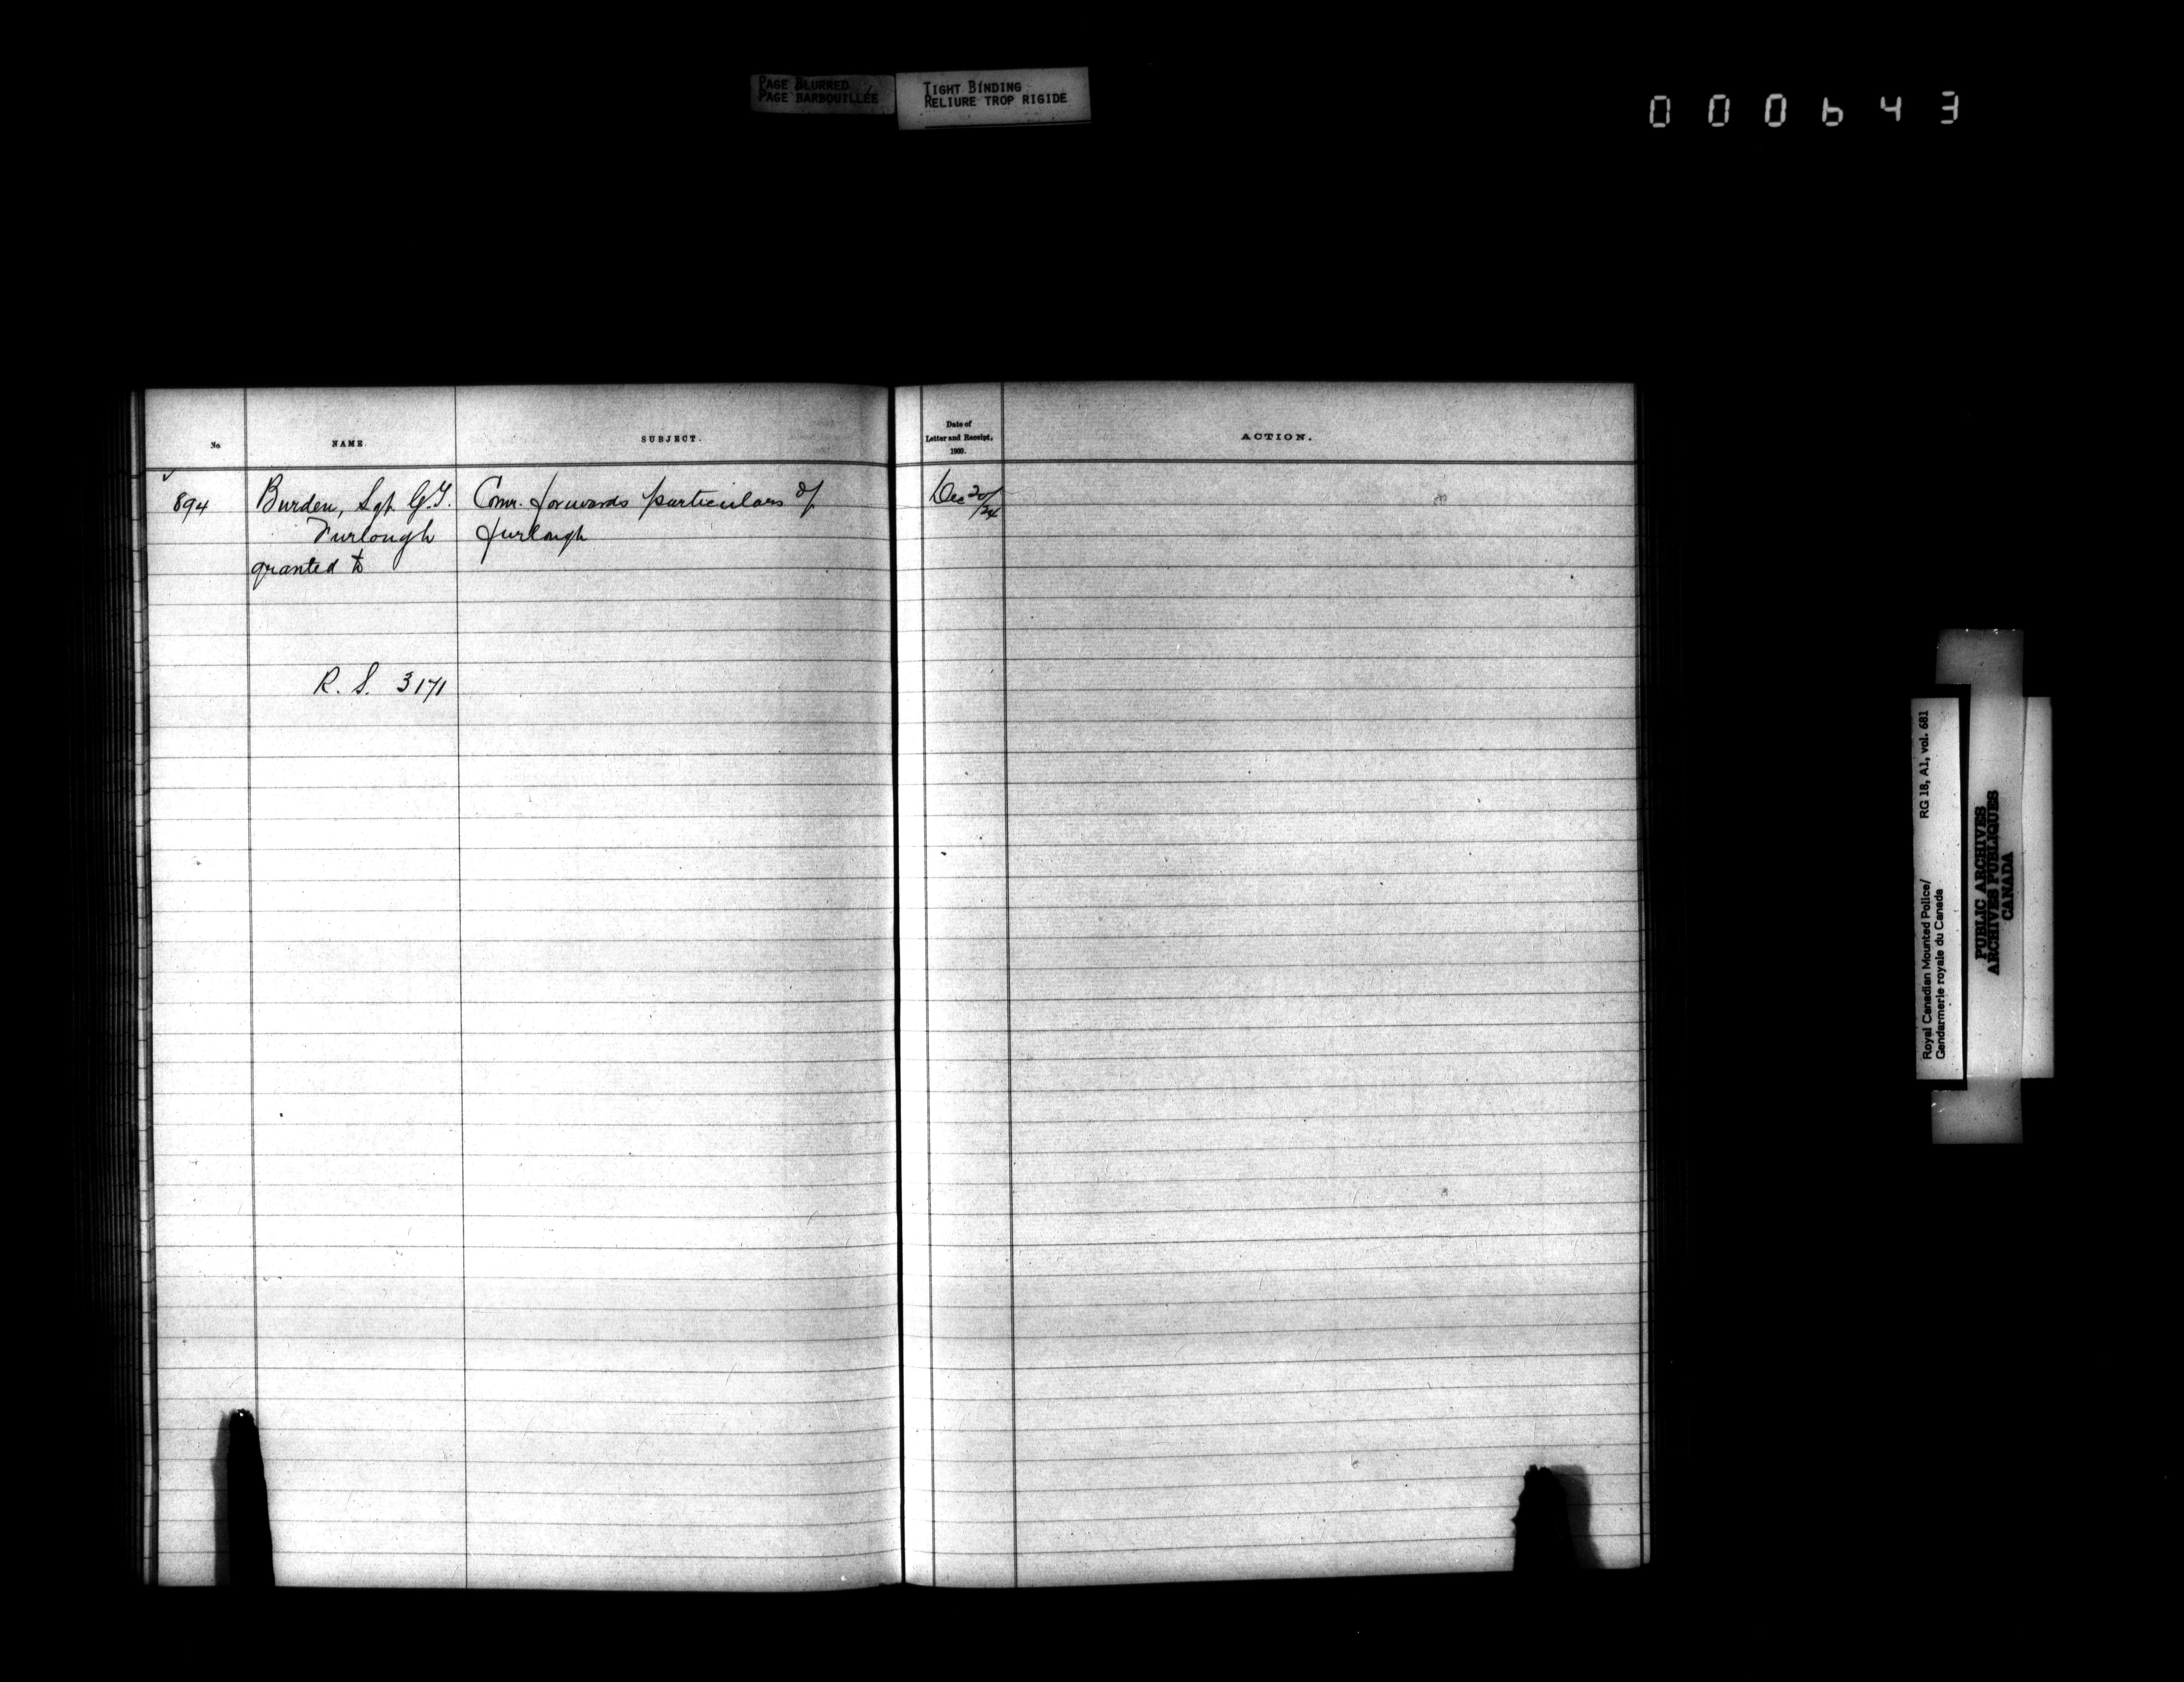 PAGE BLURRED
PAGE BARBOUILLÉE
TIGHT BINDING
RELIURE TROP RIGIDE
000643
No.
NAME.
SUBJECT.
Date of
Letter and Receipt,
1900.
ACTION.
894
Burden, Sgt. G.T.
Comr. forwards particulars of
Dec 20/24
Furlough
furlough
granted to
R. S. 3171
Royal Canadian Mounted Police/ RG 18, A1, vol. 681
Gendarmerie royale du Canada
PUBLIC ARCHIVES
ARCHIVES PUBLIQUES
CANADA